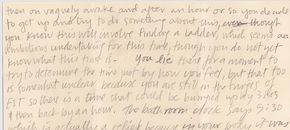 then on vaguely awake and after an hour or so you decide
to get up and try to do something about this, even though
you know this will involve finding a ladder, which seems an
ambitious undertaking for this time, though you do not yet
know what this time is. You lie there for a moment to
try to determine the time just by how you feel, but that too
is somewhat unclear because you are still in the throes of
EST so there is a time that could be bumped up by 3 hrs
& then back by an hour. The bedroom clock says 5:30
which is actually a relief because in your body it was